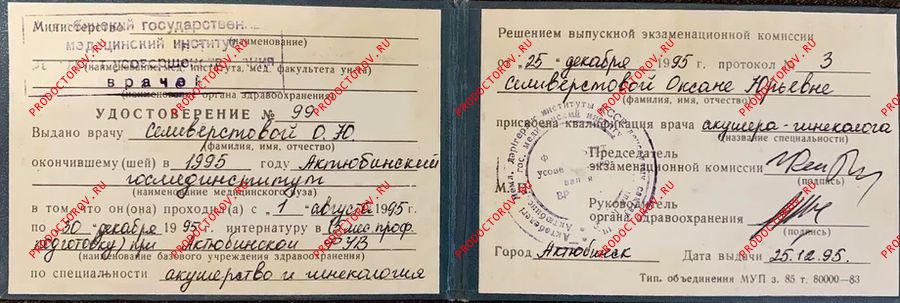 Министерство
бинский государствен
медицинский институт
(наименование)
(наименование мед. института, мед. факультета ун-та)
врачей
(наименование органа здравоохранения)
УДОСТОВЕРЕНИЕ № 99
Выдано врачу Селиверстовой О. Ю
(фамилия, имя, отчество)
окончившему(шей) в 1995 году Актюбинский
госмединститут
(наименование медицинского вуза)
в том что он(она) проходил(а) с „1" августа 1995 г.
по „30" декабря 1995 г. интернатуру в
подготовку) при Актюбинской
(наименование базового учреждения здравоохранения)
по специальности акушерство и гинекология
Решением выпускной экзаменационной комиссии
от „25" декабря 1995 г. протокол № 3
Селиверстовой Оксане Юрьевне
(фамилия, имя, отчество)
присвоена квалификация врача акушера-гинеколога
(название специальности)
Председатель
экзаменационной комиссии
(подпись)
М. П.
Руководитель
органа здравоохранения
(подпись)
Город Актюбинск Дата выдачи 25.12.95.
Тип. объединения МУП з. 85 т. 80000—83
PRODOCTOROV.RU